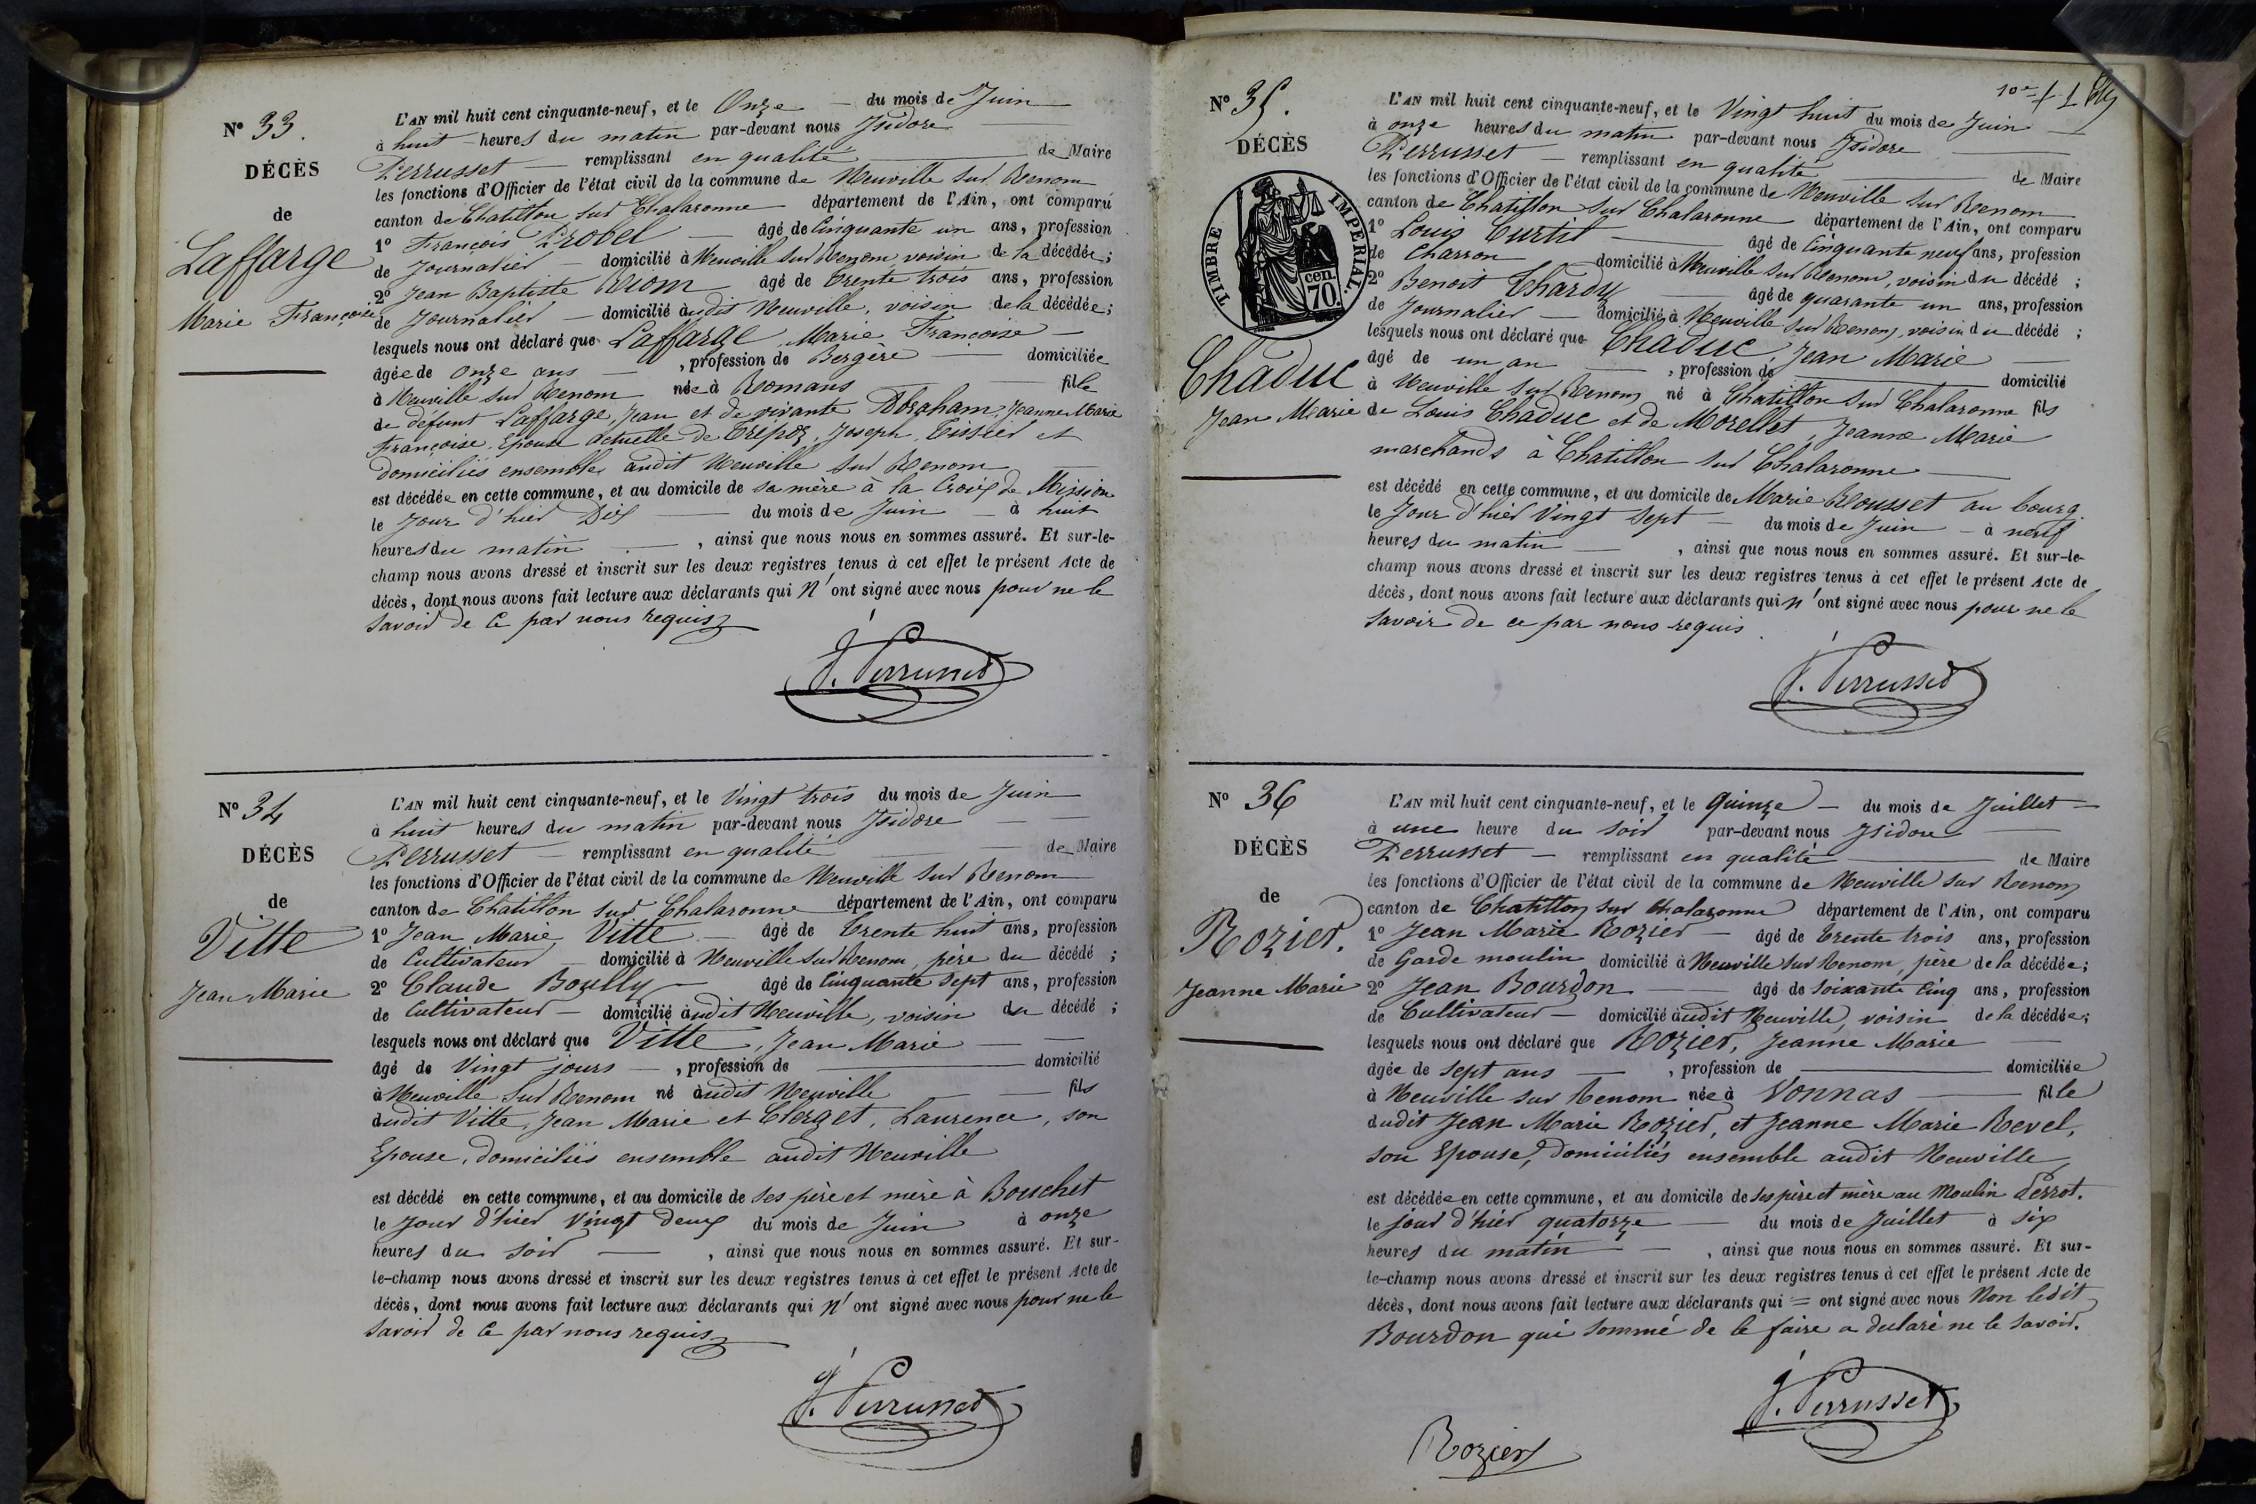 N° 33.
DÉCÈS
de
Laffarge
Marie Françoise
L'AN mil huit cent cinquante-neuf, et le Onze du mois de Juin
à huit heures du matin par-devant nous Isidore
Perrusset remplissant en qualité de Maire
les fonctions d'Officier de l'état civil de la commune de Neuville sur Renom
canton de Chatillon sur Chalaronne département de l'Ain, ont comparu
1° François Probel âgé de Cinquante un ans, profession
de Journalier domicilié à Neuville sur Renom, voisin de la décédée;
2° Jean Baptiste Riom âgé de Trente trois ans, profession
de Journalier domicilié audit Neuville, voisin de la décédée;
lesquels nous ont déclaré que Laffarge, Marie Françoise
âgée de onze ans, profession de Bergère domiciliée
à Neuville sur Renom née à Romans fille
de défunt Laffarge, Jean et de vivante Abraham, Jeanne Marie
Françoise, Epouse actuelle de Trépoz, Joseph, Tissier et
domiciliés ensemble, audit Neuville sur Renom
est décédée en cette commune, et au domicile de sa mère à la Croix de Mission
le Jour d'hier Dix du mois de Juin à huit
heures du matin, ainsi que nous nous en sommes assuré. Et sur-le-
champ nous avons dressé et inscrit sur les deux registres tenus à cet effet le présent Acte de
décès, dont nous avons fait lecture aux déclarants qui n'ont signé avec nous pour ne le
savoir de ce par nous requis
J. Perrusset
N° 34
DÉCÈS
de
Vitte
Jean Marie
L'AN mil huit cent cinquante-neuf, et le Vingt trois du mois de Juin
à huit heures du matin par-devant nous Isidore
Perrusset remplissant en qualité de Maire
les fonctions d'Officier de l'état civil de la commune de Neuville sur Renom
canton de Chatillon sur Chalaronne département de l'Ain, ont comparu
1° Jean Marie Vitte âgé de Trente huit ans, profession
de Cultivateur domicilié à Neuville sur Renom, père du décédé ;
2° Claude Boully âgé de Cinquante sept ans, profession
de Cultivateur domicilié audit Neuville, voisin du décédé ;
lesquels nous ont déclaré que Vitte, Jean Marie
âgé de Vingt jours, profession de domicilié
à Neuville sur Renom né audit Neuville fils
dudit Vitte, Jean Marie et Clerget, Laurence, son
Epouse, domiciliés ensemble audit Neuville
est décédé en cette commune, et au domicile de ses père et mère à Bouchet
le Jour d'hier Vingt deux du mois de Juin à onze
heures du soir, ainsi que nous nous en sommes assuré. Et sur-
le-champ nous avons dressé et inscrit sur les deux registres tenus à cet effet le présent Acte de
décès, dont nous avons fait lecture aux déclarants qui n'ont signé avec nous pour ne le
savoir de ce par nous requis
J. Perrusset
N° 35.
DÉCÈS
TIMBRE IMPERIAL.
70 cen.
Chaduc
Jean Marie
L'AN mil huit cent cinquante-neuf, et le Vingt huit du mois de Juin
à onze heures du matin par-devant nous Isidore
Perrusset remplissant en qualité de Maire
les fonctions d'Officier de l'état civil de la commune de Neuville sur Renom
canton de Chatillon sur Chalaronne département de l'Ain, ont comparu
1° Louis Curtit âgé de Cinquante neuf ans, profession
de Charron domicilié à Neuville sur Renom, voisin du décédé ;
2° Benoit Chardy âgé de quarante un ans, profession
de Journalier domicilié à Neuville sur Renom, voisin du décédé ;
lesquels nous ont déclaré que Chaduc, Jean Marie
âgé de un an, profession de domicilié
à Neuville sur Renom né à Chatillon sur Chalaronne fils
de Louis Chaduc et de Morellet, Jeanne Marie
marchands à Chatillon sur Chalaronne
est décédé en cette commune, et au domicile de Marie Rousset au bourg
le Jour d'hier Vingt sept du mois de Juin à neuf
heures du matin, ainsi que nous nous en sommes assuré. Et sur-le-
champ nous avons dressé et inscrit sur les deux registres tenus à cet effet le présent Acte de
décès, dont nous avons fait lecture aux déclarants qui n'ont signé avec nous pour ne le
savoir de ce par nous requis.
J. Perrusset
N° 36
DÉCÈS
de
Rozier.
Jeanne Marie
L'AN mil huit cent cinquante-neuf, et le Quinze du mois de Juillet
à une heure du soir par-devant nous Isidore
Perrusset remplissant en qualité de Maire
les fonctions d'Officier de l'état civil de la commune de Neuville sur Renom
canton de Chatillon sur Chalaronne département de l'Ain, ont comparu
1° Jean Marie Rozier âgé de Trente trois ans, profession
de Garde moulin domicilié à Neuville sur Renom, père de la décédée;
2° Jean Bourdon âgé de soixante Cinq ans, profession
de Cultivateur domicilié audit Neuville, voisin de la décédée;
lesquels nous ont déclaré que Rozier, Jeanne Marie
âgée de sept ans, profession de domiciliée
à Neuville sur Renom née à Vonnas fille
dudit Jean Marie Rozier, et Jeanne Marie Revel,
son Epouse, domiciliés ensemble audit Neuville
est décédée en cette commune, et au domicile de ses père et mère au Moulin Perrot.
le jour d'hier quatorze du mois de Juillet à six
heures du matin, ainsi que nous nous en sommes assuré. Et sur-
le-champ nous avons dressé et inscrit sur les deux registres tenus à cet effet le présent Acte de
décès, dont nous avons fait lecture aux déclarants qui = ont signé avec nous Non ledit
Bourdon qui sommé de le faire a déclaré ne le savoir.
J. Perrusset
Rozier